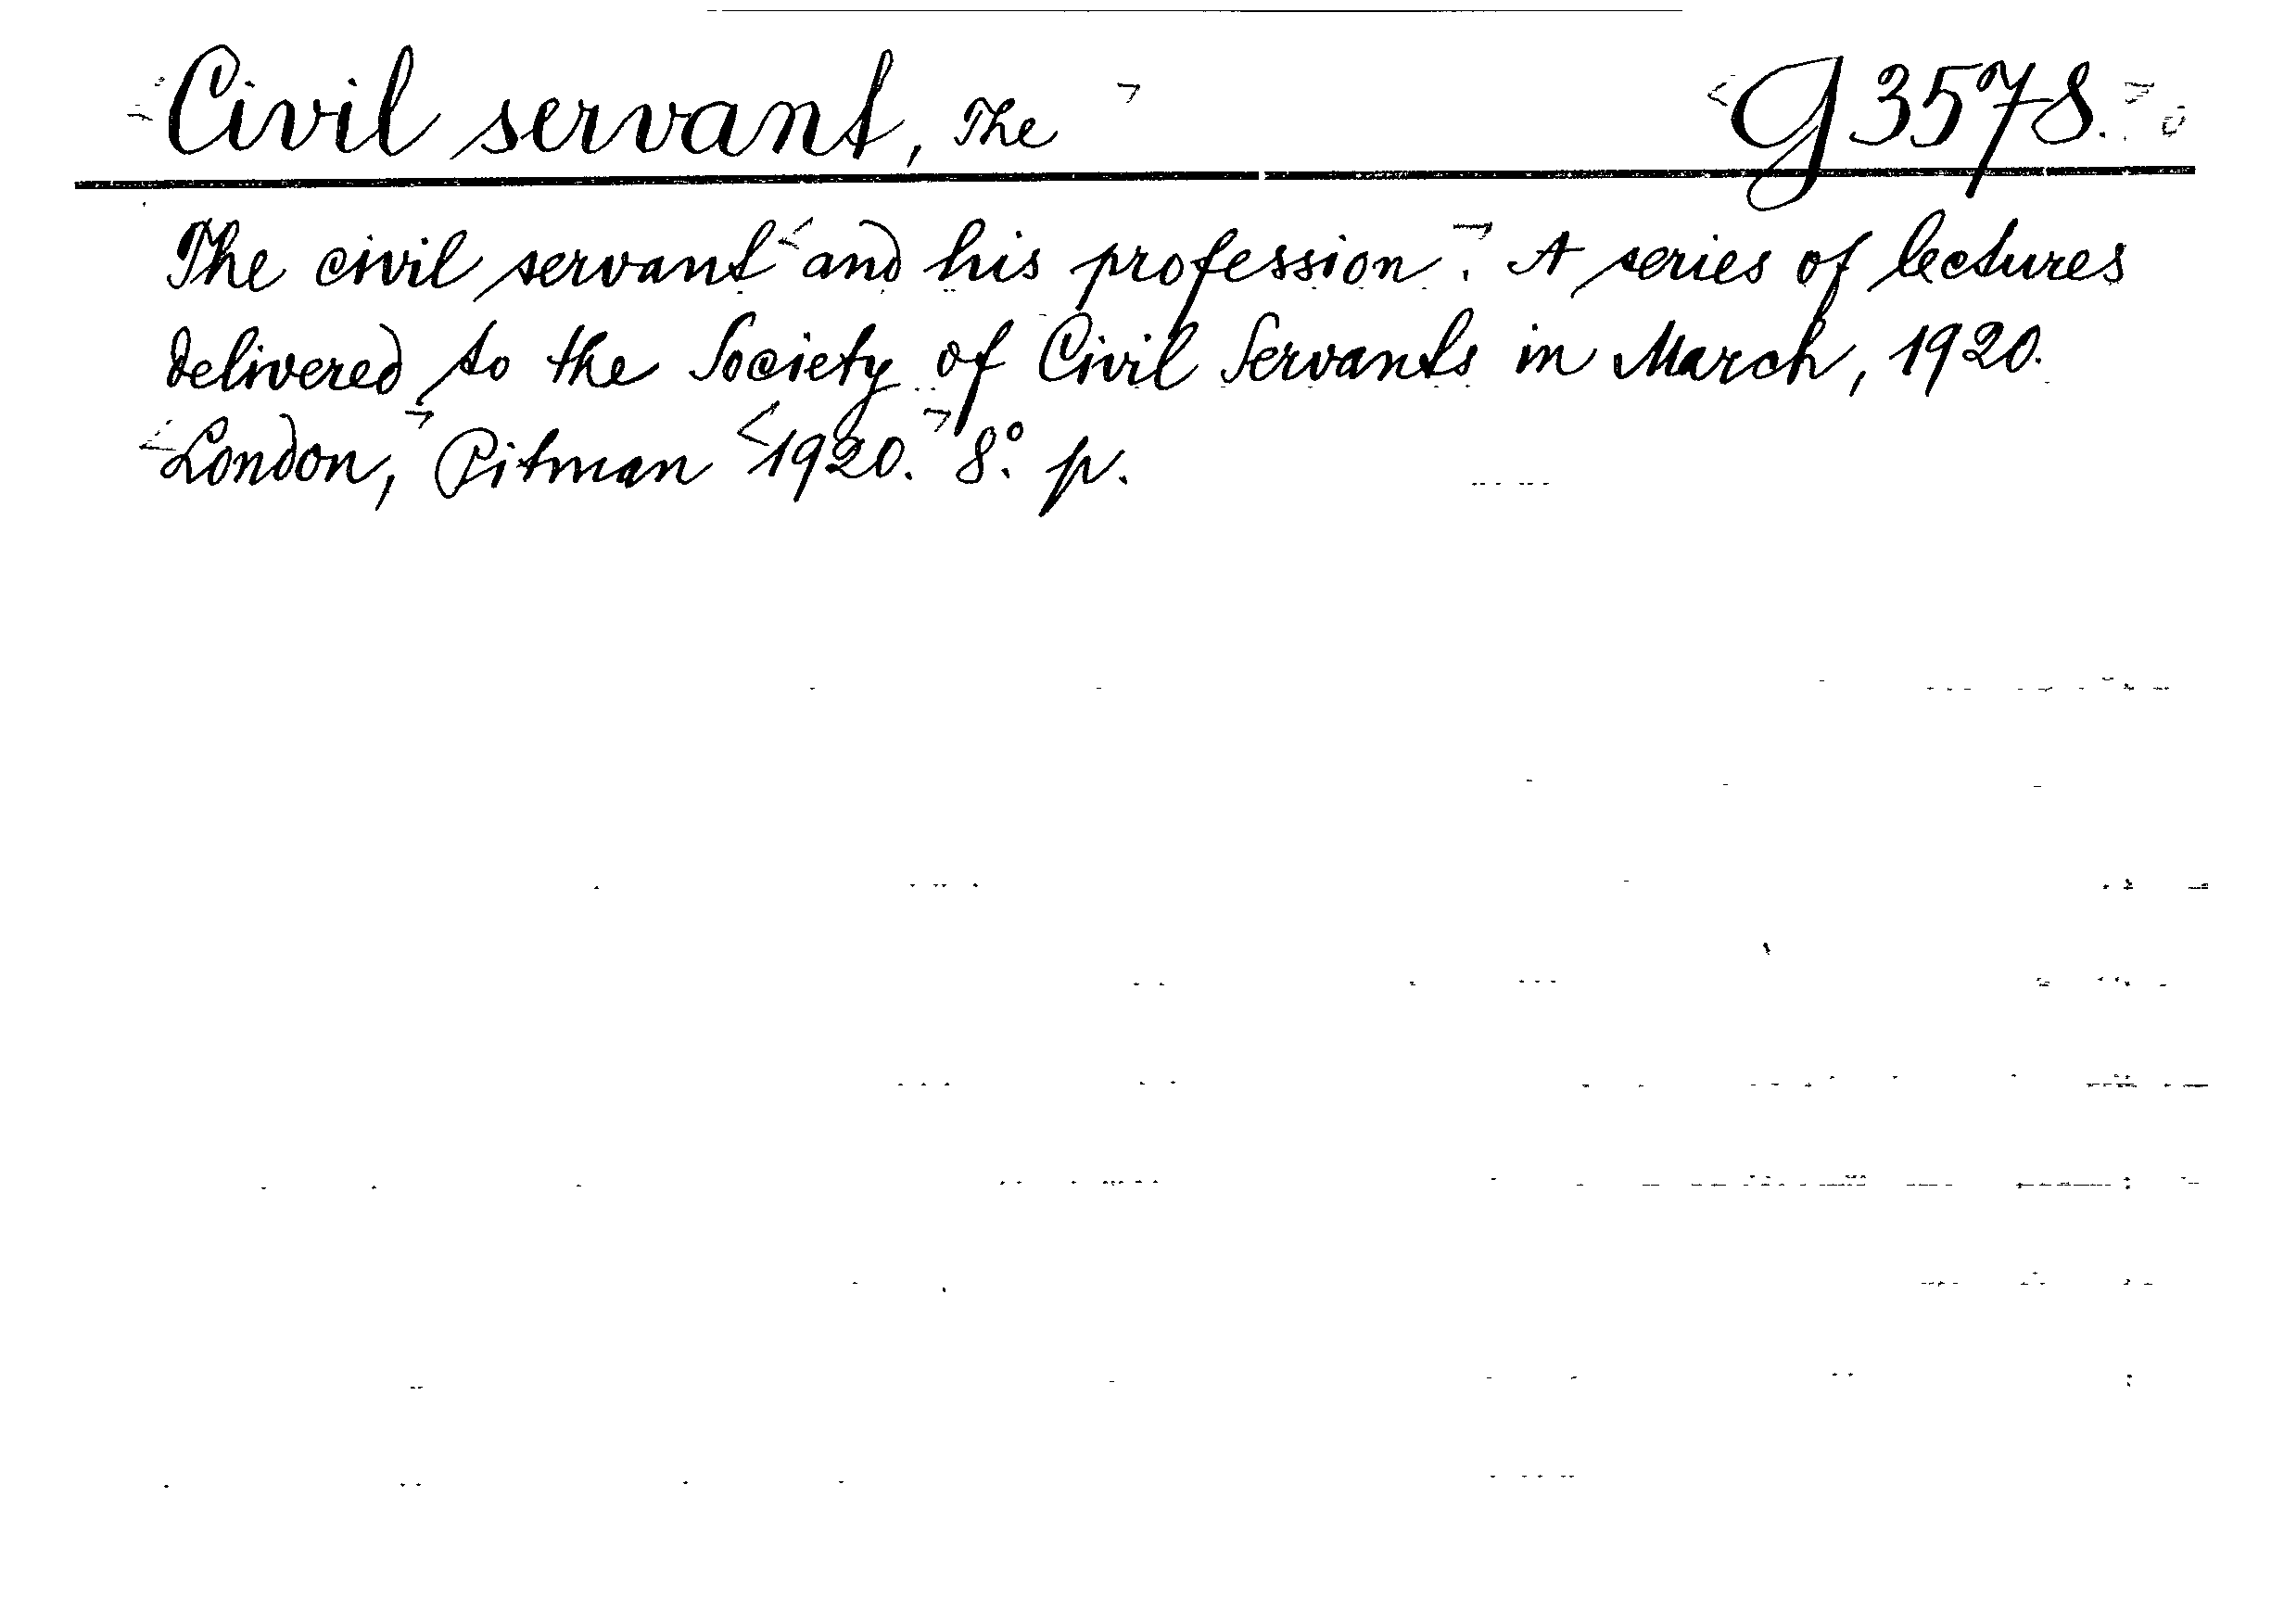 Civil servant, The G 3578.
The civil servant and his profession. A series of lectures
delivered to the Society of Civil Servants in March, 1920.
London, Pitman 1920. 8°. p.